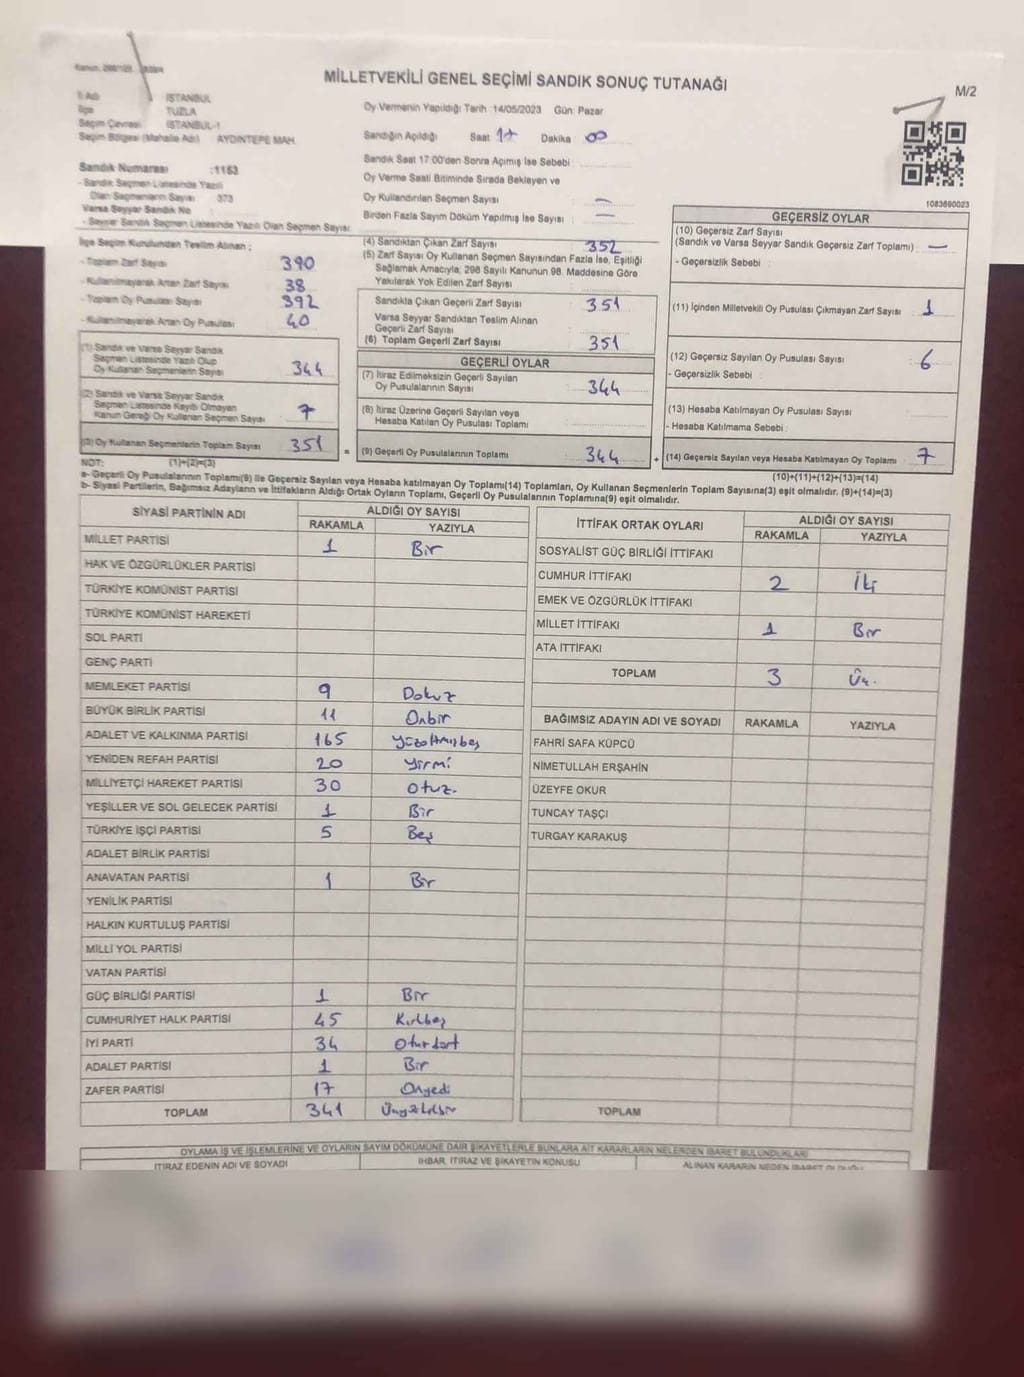 MİLLETVEKİLİ GENEL SEÇİMİ SANDIK SONUÇ TUTANAĞI
M/2
İl Adı İSTANBUL
İlçe TUZLA
Seçim Çevresi İSTANBUL-1
Seçim Bölgesi (Mahalle Adı) AYDINTEPE MAH.
Oy Vermenin Yapıldığı Tarih :14/05/2023 Gün: Pazar
Sandığın Açıldığı Saat 17 Dakika 00
Sandık Saat 17:00'den Sonra Açımış İse Sebebi
Oy Verme Saati Bitiminde Sırada Bekleyen ve
Oy Kullandırılan Seçmen Sayısı : —
Birden Fazla Sayım Döküm Yapılmış İse Sayısı : —
Sandık Numarası :1153
- Sandık Seçmen Listesinde Yazılı
Olan Seçmenlerin Sayısı 373
Varsa Seyyar Sandık No
- Seyyar Sandık Seçmen Listesinde Yazılı Olan Seçmen Sayısı:
1083690023
İlçe Seçim Kurulundan Teslim Alınan ;
- Toplam Zarf Sayısı 390
- Kullanılmayarak Artan Zarf Sayısı 38
- Toplam Oy Pusulası Sayısı 392
- Kullanılmayarak Artan Oy Pusulası 40
(1) Sandık ve Varsa Seyyar Sandık
Seçmen Listesinde Yazılı Olup
Oy Kullanan Seçmenlerin Sayısı 344
(2) Sandık ve Varsa Seyyar Sandık
Seçmen Listesinde Kayıtlı Olmayan
Kanun Gereği Oy Kullanan Seçmen Sayısı : 7
(3) Oy Kullanan Seçmenlerin Toplam Sayısı 351
(4) Sandıktan Çıkan Zarf Sayısı : 352
(5) Zarf Sayısı Oy Kullanan Seçmen Sayısından Fazla İse, Eşitliği
Sağlamak Amacıyla; 298 Sayılı Kanunun 98. Maddesine Göre
Yakılarak Yok Edilen Zarf Sayısı
Sandıkta Çıkan Geçerli Zarf Sayısı : 351
Varsa Seyyar Sandıktan Teslim Alınan
Geçerli Zarf Sayısı
(6) Toplam Geçerli Zarf Sayısı : 351
GEÇERLİ OYLAR
(7) İtiraz Edilmeksizin Geçerli Sayılan
Oy Pusulalarının Sayısı : 344
(8) İtiraz Üzerine Geçerli Sayılan veya
Hesaba Katılan Oy Pusulası Toplamı :
= (9) Geçerli Oy Pusulalarının Toplamı : 344
GEÇERSİZ OYLAR
(10) Geçersiz Zarf Sayısı
(Sandık ve Varsa Seyyar Sandık Geçersiz Zarf Toplamı) : —
- Geçersizlik Sebebi :
(11) İçinden Milletvekili Oy Pusulası Çıkmayan Zarf Sayısı : 1
(12) Geçersiz Sayılan Oy Pusulası Sayısı : 6
- Geçersizlik Sebebi :
(13) Hesaba Katılmayan Oy Pusulası Sayısı
- Hesaba Katılmama Sebebi :
+ (14) Geçersiz Sayılan veya Hesaba Katılmayan Oy Toplamı : 7
NOT: (1)+(2)=(3) (10)+(11)+(12)+(13)=(14)
a- Geçerli Oy Pusulalarının Toplamı(9) ile Geçersiz Sayılan veya Hesaba katılmayan Oy Toplamı(14) Toplamları, Oy Kullanan Seçmenlerin Toplam Sayısına(3) eşit olmalıdır. (9)+(14)=(3)
b- Siyasi Partilerin, Bağımsız Adayların ve İttifakların Aldığı Ortak Oyların Toplamı, Geçerli Oy Pusulalarının Toplamına(9) eşit olmalıdır.
SİYASİ PARTİNİN ADI ALDIĞI OY SAYISI
RAKAMLA YAZIYLA
MİLLET PARTİSİ 1 Bir
HAK VE ÖZGÜRLÜKLER PARTİSİ
TÜRKİYE KOMÜNİST PARTİSİ
TÜRKİYE KOMÜNİST HAREKETİ
SOL PARTİ
GENÇ PARTİ
MEMLEKET PARTİSİ 9 Dokuz
BÜYÜK BİRLİK PARTİSİ 11 Onbir
ADALET VE KALKINMA PARTİSİ 165 Yüzaltmışbeş
YENİDEN REFAH PARTİSİ 20 Yirmi
MİLLİYETÇİ HAREKET PARTİSİ 30 Otuz.
YEŞİLLER VE SOL GELECEK PARTİSİ 1 Bir
TÜRKİYE İŞÇİ PARTİSİ 5 Beş
ADALET BİRLİK PARTİSİ
ANAVATAN PARTİSİ 1 Bir
YENİLİK PARTİSİ
HALKIN KURTULUŞ PARTİSİ
MİLLİ YOL PARTİSİ
VATAN PARTİSİ
GÜÇ BİRLİĞİ PARTİSİ 1 Bir
CUMHURİYET HALK PARTİSİ 45 Kırkbeş
İYİ PARTİ 34 Oturdört
ADALET PARTİSİ 1 Bir
ZAFER PARTİSİ 17 Onyedi
TOPLAM 341
İTTİFAK ORTAK OYLARI ALDIĞI OY SAYISI
RAKAMLA YAZIYLA
SOSYALİST GÜÇ BİRLİĞİ İTTİFAKI
CUMHUR İTTİFAKI 2 İki
EMEK VE ÖZGÜRLÜK İTTİFAKI
MİLLET İTTİFAKI 1 Bir
ATA İTTİFAKI
TOPLAM 3 Üç.
BAĞIMSIZ ADAYIN ADI VE SOYADI RAKAMLA YAZIYLA
FAHRİ SAFA KÜPCÜ
NİMETULLAH ERŞAHİN
ÜZEYFE OKUR
TUNCAY TAŞÇI
TURGAY KARAKUŞ
TOPLAM
OYLAMA İŞ VE İŞLEMLERİNE VE OYLARIN SAYIM DÖKÜMÜNE DAİR ŞİKAYETLERLE BUNLARA AİT KARARLARIN NELERDEN İBARET BULUNDUKLARI
İTİRAZ EDENİN ADI VE SOYADI İHBAR, İTİRAZ VE ŞİKAYETİN KONUSU ALINAN KARARIN NEDEN İBARET OLDUĞU